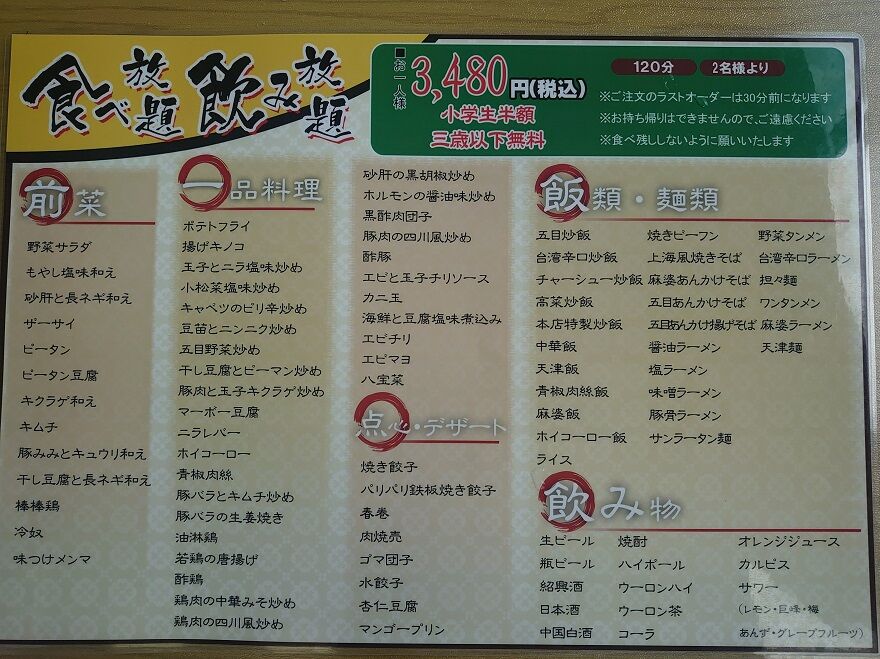 食べ放題 飲み放題
■お一人様 3,480円(税込)
小学生半額
三歳以下無料
120分 2名様より
※ご注文のラストオーダーは30分前になります
※お持ち帰りはできませんので、ご遠慮ください
※食べ残ししないように願いいたします
前菜
野菜サラダ
もやし塩味和え
砂肝と長ネギ和え
ザーサイ
ピータン
ピータン豆腐
キクラゲ和え
キムチ
豚みみとキュウリ和え
干し豆腐と長ネギ和え
棒棒鶏
冷奴
味つけメンマ
一品料理
ポテトフライ
揚げキノコ
玉子とニラ塩味炒め
小松菜塩味炒め
キャベツのピリ辛炒め
豆苗とニンニク炒め
五目野菜炒め
干し豆腐とピーマン炒め
豚肉と玉子キクラゲ炒め
マーボー豆腐
ニラレバー
ホイコーロー
青椒肉絲
豚バラとキムチ炒め
豚バラの生姜焼き
油淋鶏
若鶏の唐揚げ
酢鶏
鶏肉の中華みそ炒め
鶏肉の四川風炒め
砂肝の黒胡椒炒め
ホルモンの醤油味炒め
黒酢肉団子
豚肉の四川風炒め
酢豚
エビと玉子チリソース
カニ玉
海鮮と豆腐塩味煮込み
エビチリ
エビマヨ
八宝菜
点心・デザート
焼き餃子
パリパリ鉄板焼き餃子
春巻
肉焼売
ゴマ団子
水餃子
杏仁豆腐
マンゴープリン
飯類・麺類
五目炒飯 焼きビーフン 野菜タンメン
台湾辛口炒飯 上海風焼きそば 台湾辛口ラーメン
チャーシュー炒飯 麻婆あんかけそば 担々麺
高菜炒飯 五目あんかけそば ワンタンメン
本店特製炒飯 五目あんかけ揚げそば 麻婆ラーメン
中華飯 醤油ラーメン 天津麺
天津飯 塩ラーメン
青椒肉絲飯 味噌ラーメン
麻婆飯 豚骨ラーメン
ホイコーロー飯 サンラータン麺
ライス
飲み物
生ビール 焼酎 オレンジジュース
瓶ビール ハイボール カルピス
紹興酒 ウーロンハイ サワー
日本酒 ウーロン茶 (レモン・巨峰・梅
中国白酒 コーラ あんず・グレープフルーツ)